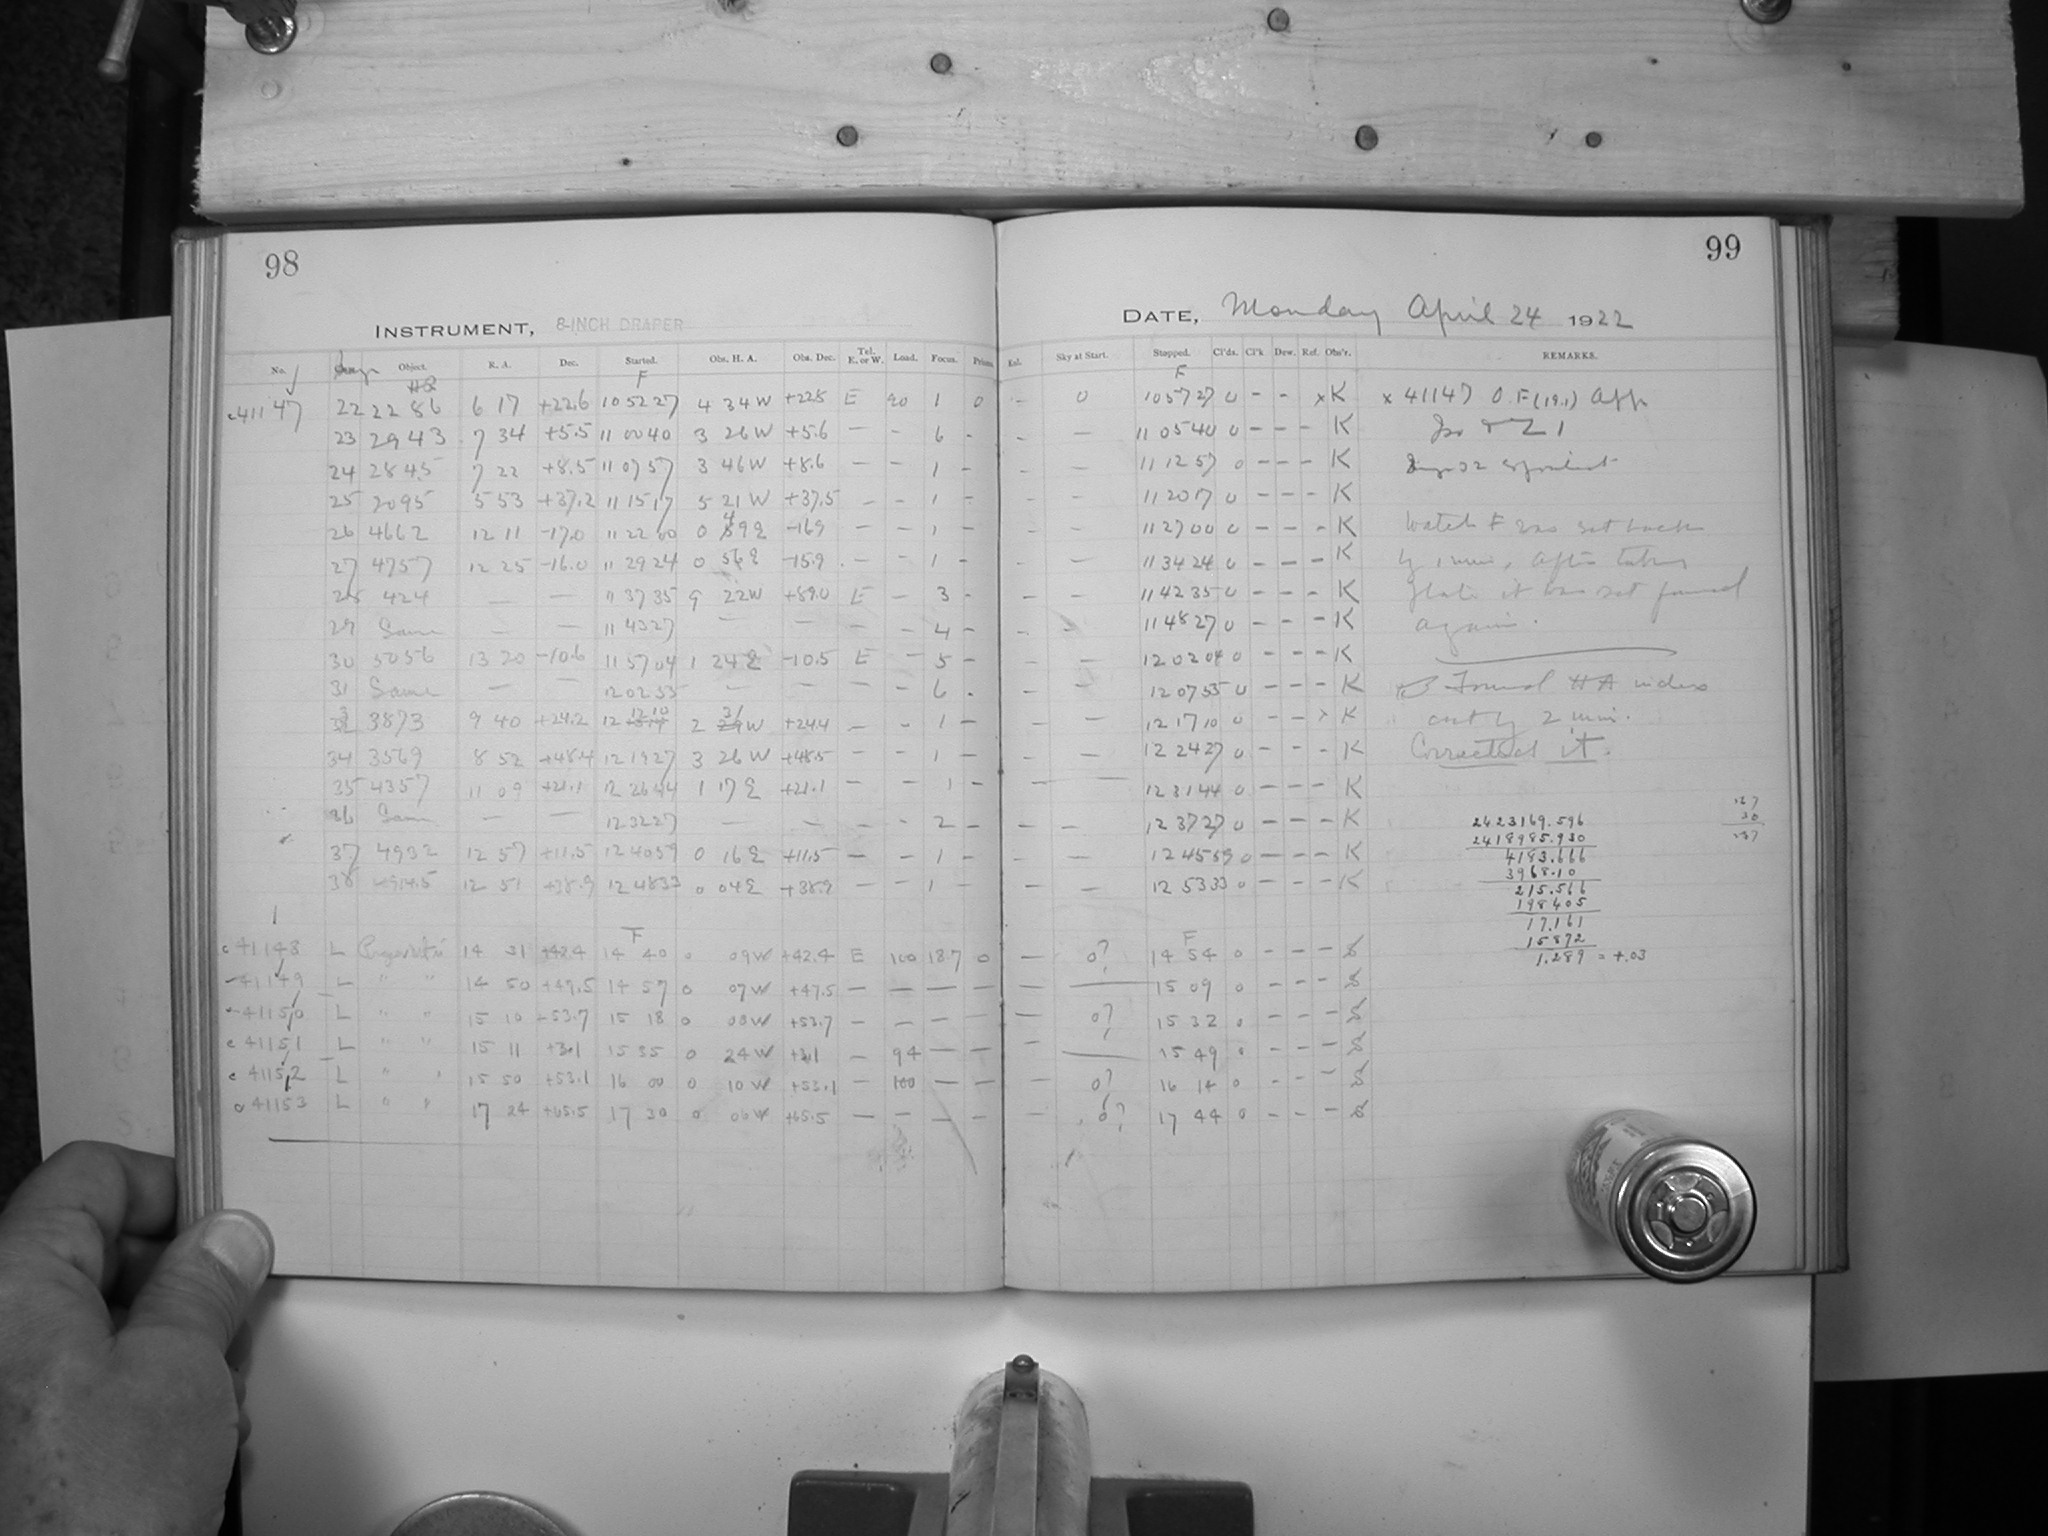 98
INSTRUMENT, 8-INCH DRAPER
No. Object. R. A. Dec. Started. Obs. H. A. Obs. Dec. Tel. E. or W. Load. Focus. Prism.
F
c41147 22 2286 6 17 +22.6 10 52 27 4 34 W +22.8 E 90 1 0
23 2943 7 34 +5.5 11 00 40 3 26 W +5.6 — — 6 -
24 2845 7 22 +8.5 11 07 57 3 46 W +8.6 — — 1 -
25 2095 5 53 +37.2 11 15 17 5 21 W +37.5 — — 1 -
26 4662 12 11 -17.0 11 22 00 0 49 E -16.9 — — 1 -
27 4757 12 25 -16.0 11 29 24 0 56 E -15.9 — — 1 -
28 424 — — 11 37 35 9 22 W +89.0 E — 3 -
29 Same — — 11 43 27 — — — — 4 -
30 5056 13 20 -10.6 11 57 04 1 24 E -10.5 E — 5 -
31 Same — — 12 02 55 — — — — 6 -
33 3873 9 40 +24.2 12 12 10 2 31 W +24.4 — — 1 -
34 3569 8 52 +48.4 12 19 27 3 26 W +48.5 — — 1 -
35 4357 11 09 +21.1 12 26 44 1 17 E +21.1 — — 1 -
36 Same — — 12 32 27 — — — — 2 -
37 4932 12 57 +11.5 12 40 59 0 16 E +11.5 — — 1 -
38 4914.5 12 51 +38.9 12 48 33 0 04 E +38.9 — — 1 -
F
c41148 L 14 31 +42.4 14 40 0 09 W +42.4 E 100 18.7 0
41149 L " " 14 50 +47.5 14 57 0 07 W +47.5 — — — —
41150 L " " 15 10 +53.7 15 18 0 08 W +53.7 — — — —
c 41151 L " " 15 11 +3.1 15 35 0 24 W +3.1 — 94 — —
c 41152 L " " 15 50 +53.1 16 00 0 10 W +53.1 — 100 — —
c 41153 L " " 17 24 +65.5 17 30 0 06 W +65.5 — — — —
99
DATE, Monday April 24 1922
Rel. Sky at Start. Stopped. Cl'ds. Cl'k Dew. Ref. Obs'r. REMARKS.
F
- 0 10 57 27 0 - - x K x 41147 O.F (19.1)
- — 11 05 40 0 - - - K
- — 11 12 57 0 - - - K
- — 11 20 17 0 - - - K
- — 11 27 00 0 - - - K Watch F was set back
- — 11 34 24 0 - - - K by 1 min, after taking
- — 11 42 35 0 - - - K plate it was set forward
- — 11 48 27 0 - - - K again.
- — 12 02 04 0 - - - K
- — 12 07 55 0 - - - K Found HA index
- — 12 17 10 0 - - x K out by 2 min.
- — 12 24 27 0 - - - K Corrected it.
- — 12 31 44 0 - - - K
- — 12 37 27 0 - - - K
- — 12 45 59 0 - - - K
- — 12 53 33 0 - - - K
2423169.596
2418985.930
4183.666
3968.10
215.566
198405
17.161
15872
1.289 = +.03
F
— 0? 14 54 0 - - - S
— — 15 09 0 - - - S
— 0? 15 32 0 - - - S
— — 15 49 0 - - - S
— 0? 16 14 0 - - - S
— 0? 17 44 0 - - - S